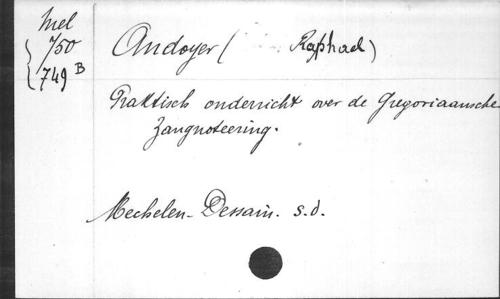 Mel
7/50
749 B
Andoyer ( Raphael)
Praktisch onderricht over de Gregoriaansche
Zangnoteering.
Mechelen - Dessain. s.d.